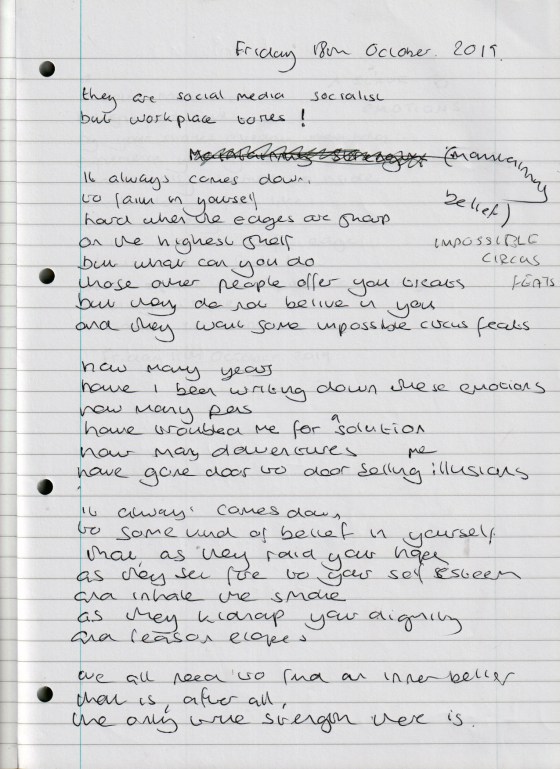 Friday 18th October. 2019.
they are social media socialist
but workplace tories!
(maintaining
belief)
It always comes down.
to faith in yourself
hard when the edges are sharp
on the highest shelf
IMPOSSIBLE
but what can you do
CIRCUS
those other people offer you treats
FEATS
but they do not belive in you
and they want some impossible circus feats
how many years
have I been writing down these emotions
how many pens
have troubled me for a solution
how many
have gone door to door selling me illusions
it always comes down
to some kind of belief in yourself
that as they raid your
as they set fire to your self esteem
and inhale the smoke
as they kidnap your dignity
and reason elopes
we all need to find an inner belief
that is, after all,
the only true strength there is.